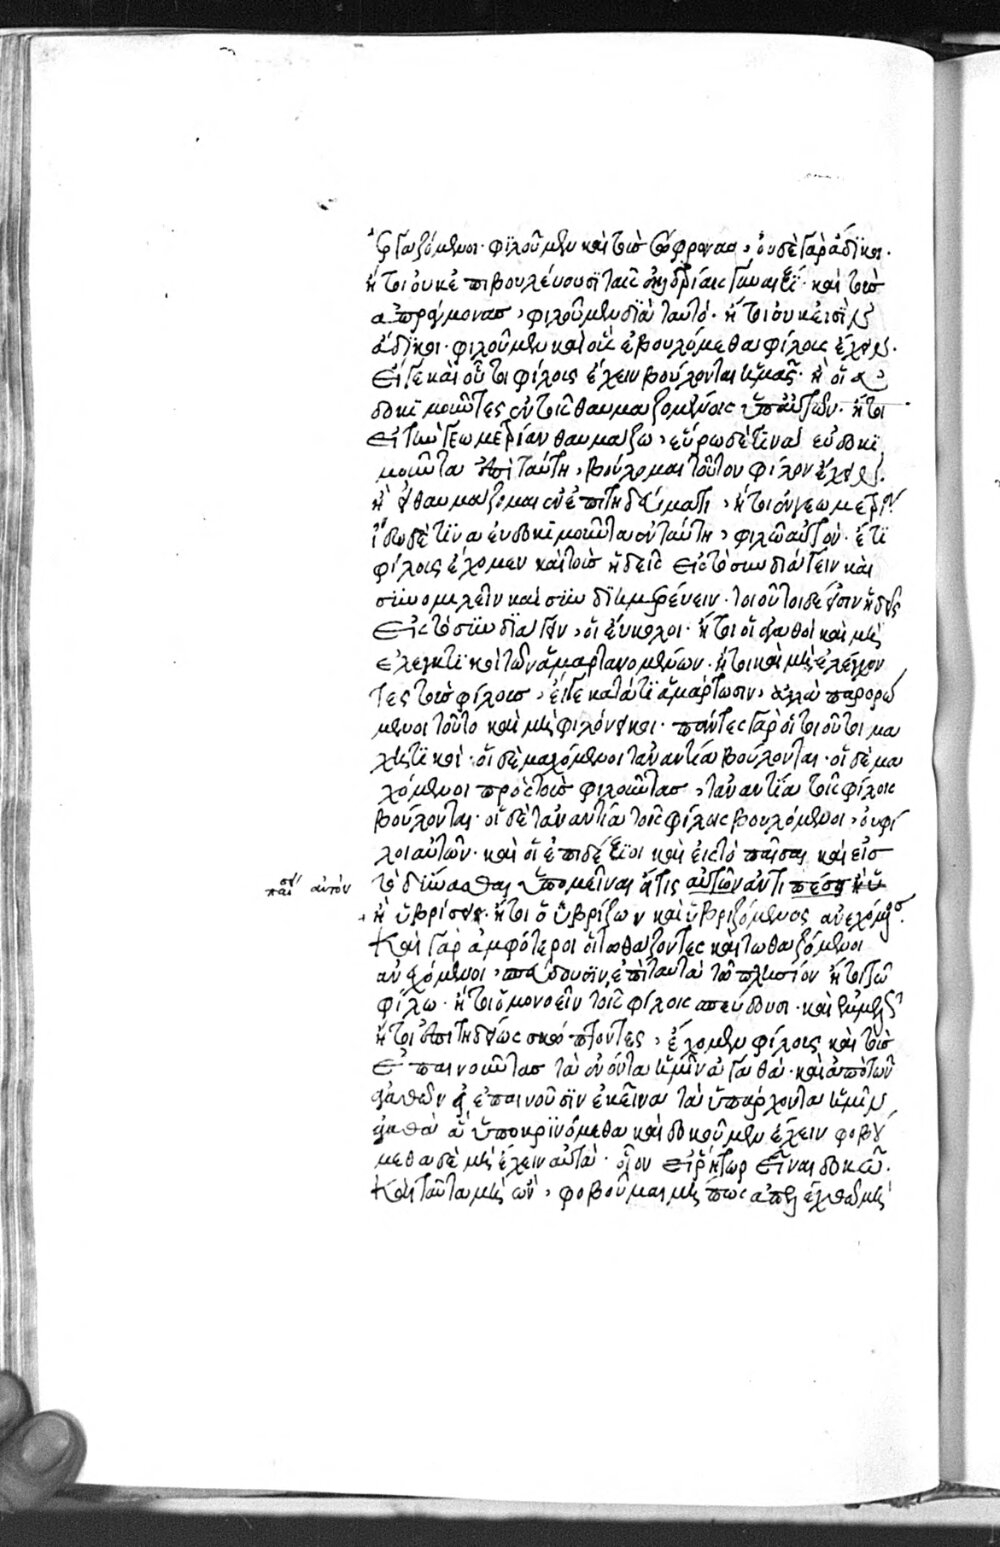 ἐργαζόμενοι· φιλοῦμεν καὶ τοὺς σώφρονας, οὐδὲ γὰρ ἄδικοι·
ἢ ὅτι οὐκ ἐπιβουλεύουσι ταῖς γυναιξί· καὶ τοὺς
ἀπράγμονας, φιλοῦμεν διὰ ταυτό· ἢ ὅτι οὐκ εἰσὶν
ἄδικοι· φιλοῦμεν καὶ οὓς ἐβουλόμεθα φίλους ἔχειν·
εἴγε καὶ οὗτοι φίλους ἔχειν βούλονται ἡμᾶς· ἢ οἱ εὐ
δοκιμοῦντες ἐν τοῖς θαυμαζομένοις ὑπ' αὐτῶν· ἢ ὅτι
εἰ τὴν γεωμετρίαν θαυμάζω, εὕρω δέ τινα εὐδοκι
μοῦντα ἐπὶ ταύτῃ, βούλομαι τοῦτον φίλον ἔχειν·
ἢ θαυμάζομαι ἐν ἐπιτηδεύματι, ἢ ὅτι ἐν γεωμετρί
ἴδω δέ τινα εὐδοκιμοῦντα ἐν ταύτῃ, φιλῶ αὐτόν· ἔτι
φίλους ἔχομεν καὶ τοὺς ἡδεῖς εἰς τὸ συνδιάγειν καὶ
συνομιλεῖν καὶ συνδιημερεύειν· τοιοῦτοι δέ εἰσιν ἡδεῖς
εἰς τὸ συνδιάγειν, οἱ εὔκολοι· ἢ ὅτι οἱ ἀγαθοὶ καὶ μὴ
ἐλεγκτικοὶ τῶν ἁμαρτανομένων· ἢ ὅτι καὶ μὴ ἐλέγχον
τες τοὺς φίλους, εἴγε κατά τι ἁμάρτωσιν, ἀλλὰ παρορώ
μενοι τοῦτο καὶ μὴ φιλόνεικοι· πάντες γὰρ οἱ τοιοῦτοι μα
χητικοί· οἱ δὲ μαχόμενοι τἀναντία βούλονται· οἱ δὲ μα
χόμενοι πρὸς τοὺς φιλοῦντας, τἀναντία τοῖς φίλοις
βούλονται· οἱ δὲ τἀναντία τοῖς φίλοις βουλόμενοι, οὐ φί
λοι αὐτῶν· καὶ οἱ ἐπιδέξιοι καὶ εἰς τὸ παῖσαι καὶ εἰς
τὸ δύνασθαι ὑπομεῖναι ἥ τις αὐτῶν ἀντι
παι αὐτὸν
ἢ ὑβρίσῃ· ἢ ὅτι ὁ ὑβρίζων καὶ ὑβριζόμενος ἀνεχόμενος·
καὶ γὰρ ἀμφότεροι οἱ τωθάζοντες καὶ τωθαζόμενοι
ἀνεχόμενοι, σπεύδουσιν ἐπὶ ταυτὰ τῷ πλησίον ἢ ὅτι τῷ
φίλῳ· ἢ ὅτι ὁμονοεῖν τοῖς φίλοις σπεύδουσι· καὶ ἐμμελῶς
ἢ ὅτι ἐπιτηδείως σκώπτοντες, ἔχομεν φίλους καὶ τοὺς
ἐπαινοῦντας τὰ ἐνόντα ἡμῖν ἀγαθά· καὶ ἀπὸ τῶν
ἀγαθῶν εἰ ἐπαινοῦσιν ἐκεῖνα τὰ ὑπάρχοντα ἡμῖν
ἀγαθὰ ἃ ὑποκρινόμεθα καὶ δοκοῦμεν ἔχειν φοβού
μεθα δὲ μὴ ἔχειν αὐτά· οἷον εἰ ῥήτωρ εἶναι δοκῶ·
καὶ ταῦτα μὴ ὤν, φοβοῦμαι μή πως ἀπελεγχθῶ μὴ